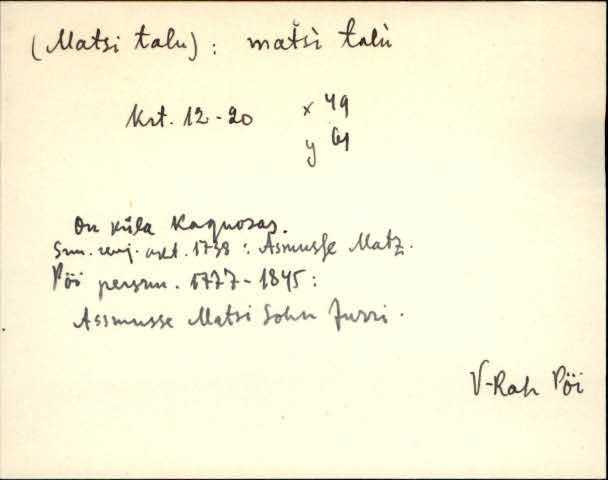 (Matsi talu): matši talù
Krt. 12-20 x 49
y 61
On küla kagnosas.
Sun. revj. akt. 1738: Asmusse Matz.
Pöi persnn. 1777-1845:
Assmusse Matsi Sohn Jurri.
V-Rah Pöi